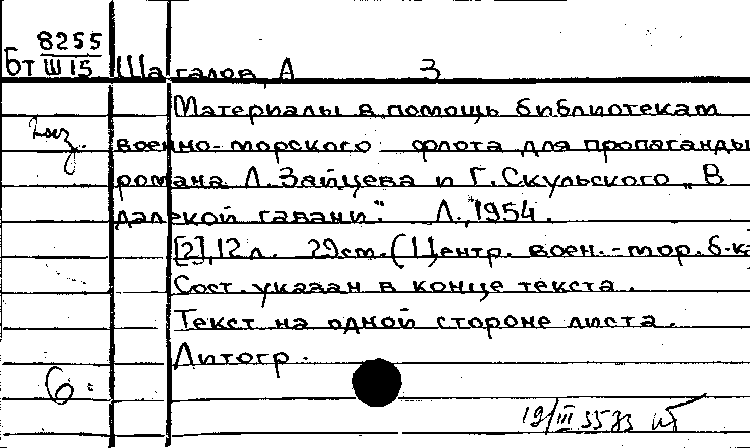 8255
Бт Ш15 Шагалов, А 3
Материалы в помощь библиотекам
военно-морского флота для пропаганды
романа Л. Зайцева и Г. Скульского „В
далекой гавани". Л., 1954.
[2], 12 л. 29 см. (Центр. воен.-мор. б-ка
Сост. указан в конце текста.
Текст на одной стороне листа.
Литогр.
6.
19/III 55